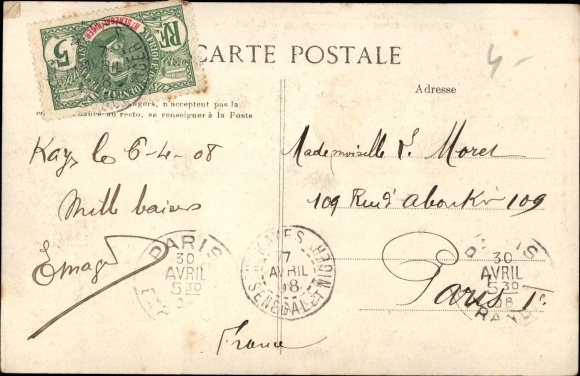 CARTE POSTALE
5
RF
Hᵀ SÉNÉGAL-NIGER
4-
Adresse
angers, n'acceptent pas la
au recto, se renseigner à la Poste
Kayes le 6-4-08
Mille baisers
Mademoiselle L. Moret
109 Rue d'Aboukir 109
Paris 2e
France
KAYES
7
AVRIL
08
Hᵗ SÉNÉGAL et NIGER
PARIS
30
AVRIL
5 30
PARIS
30
AVRIL
5 30
08